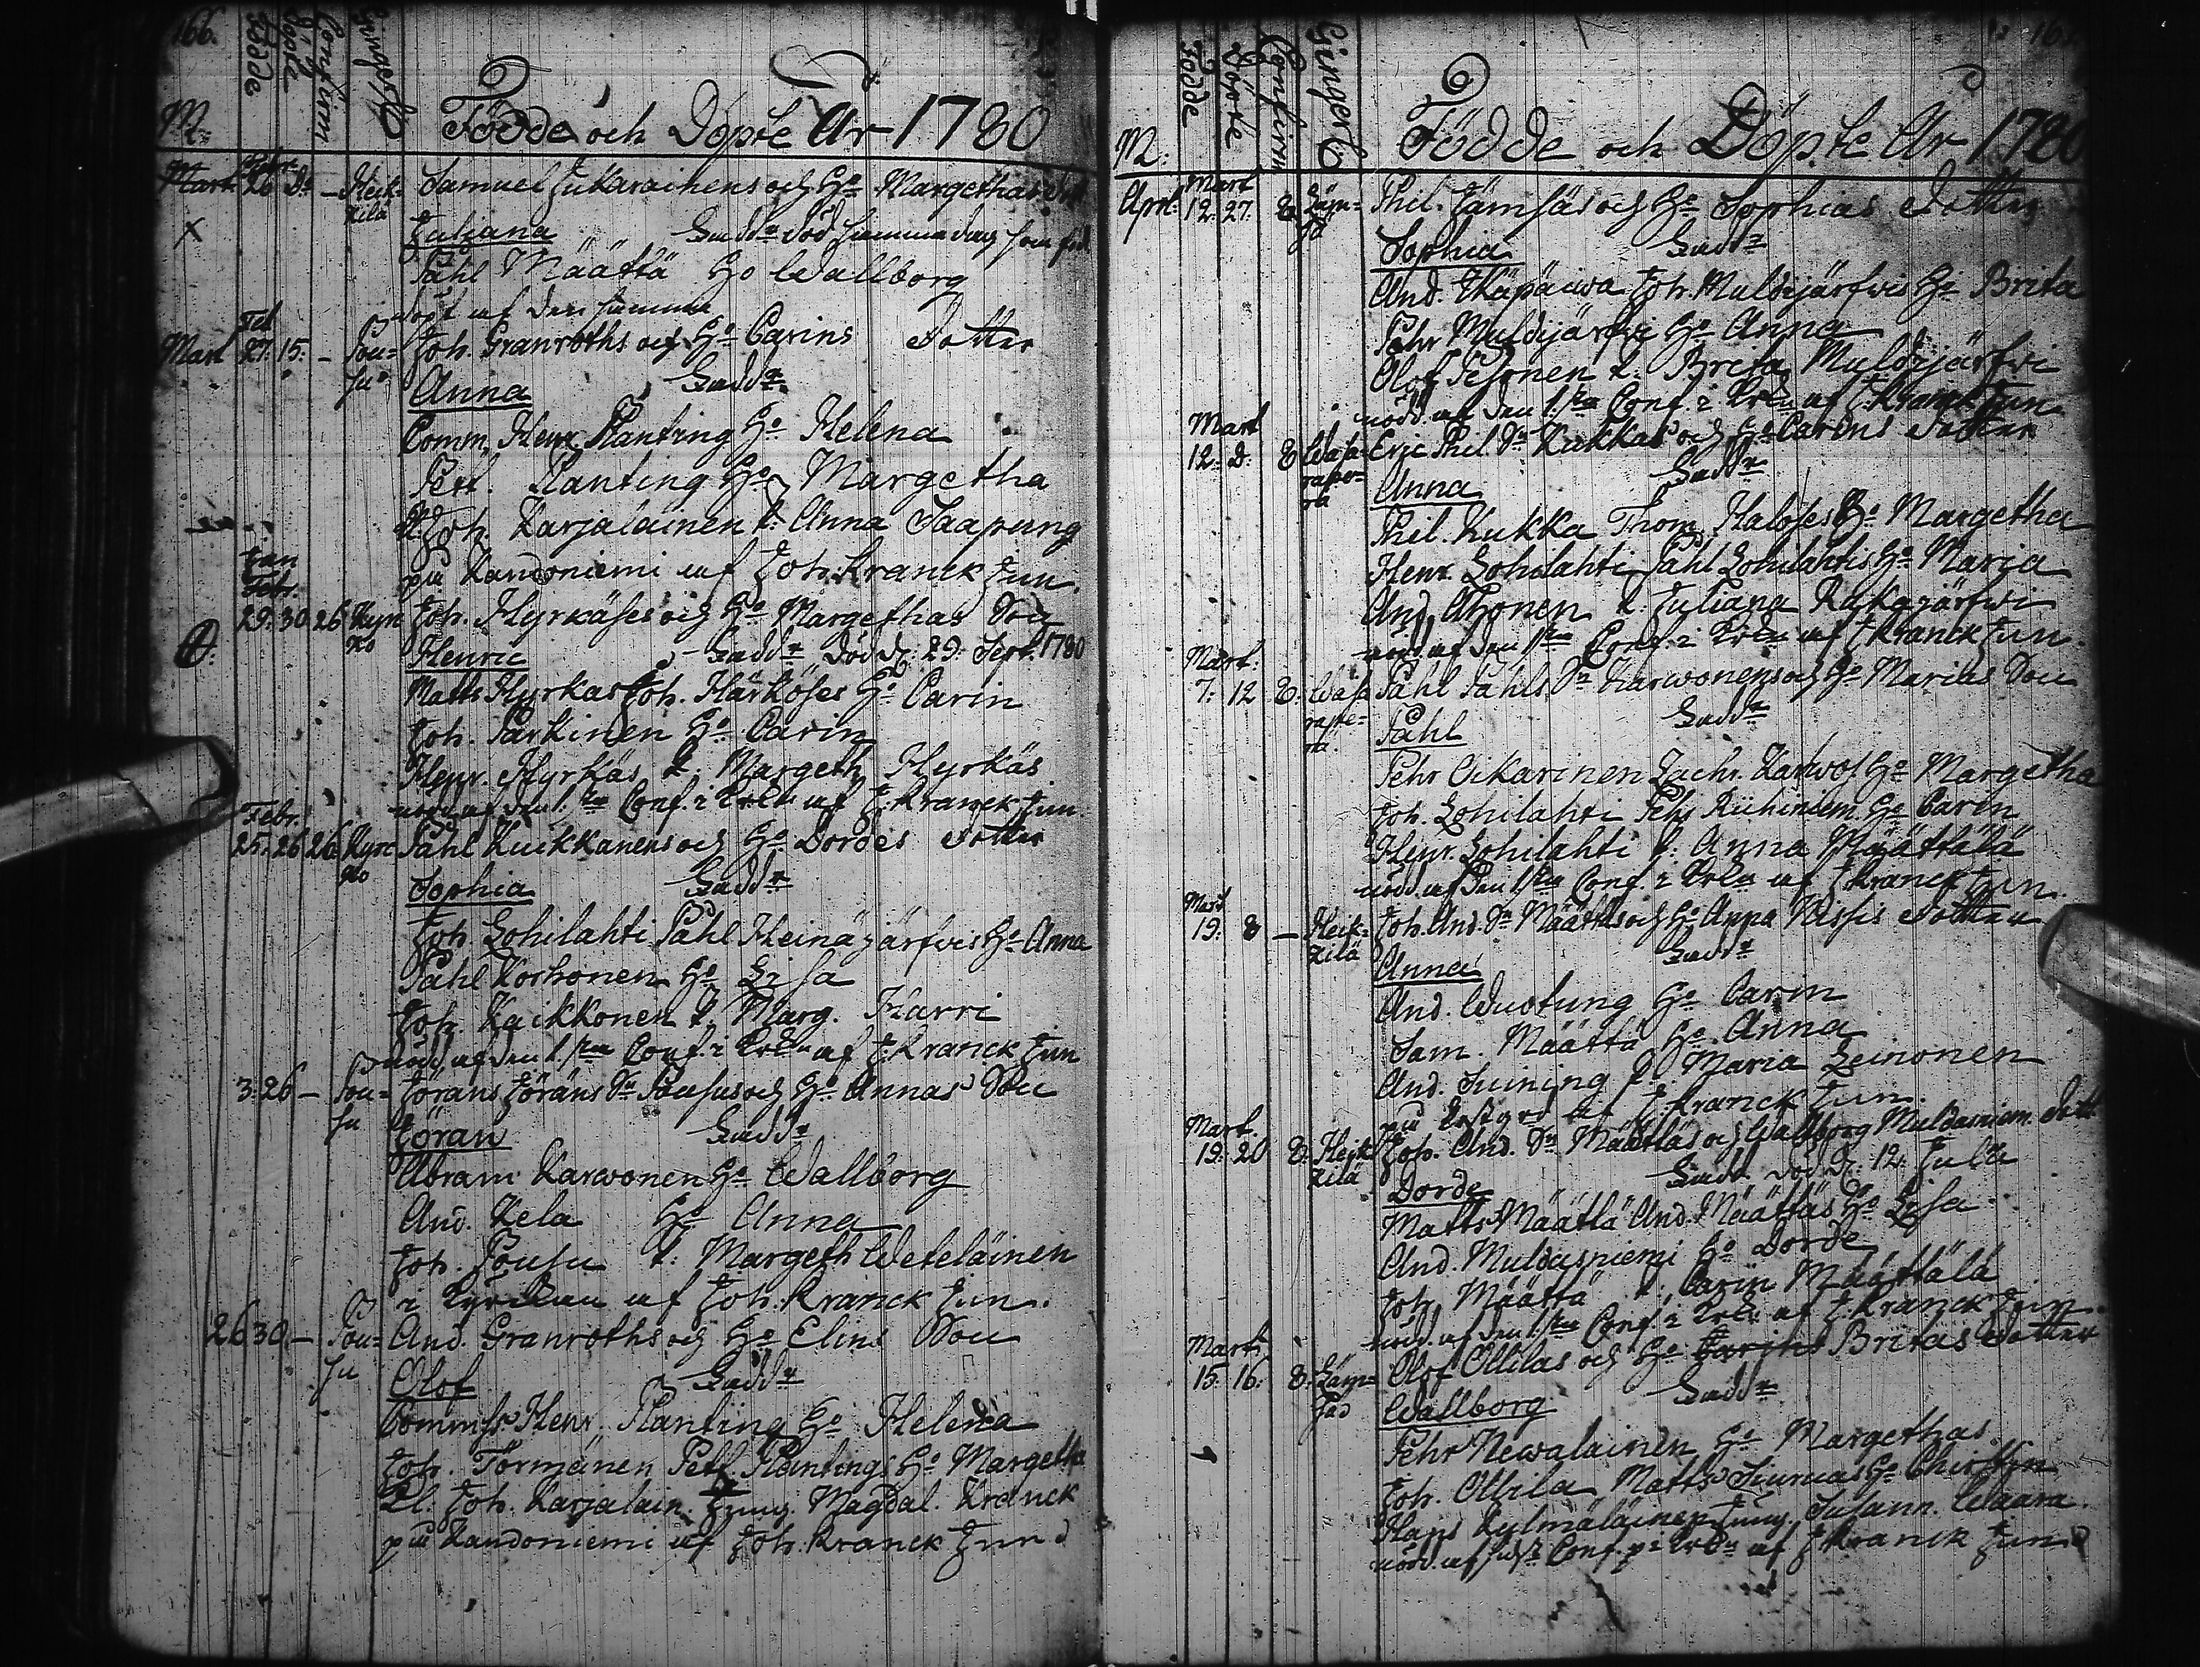 166.
Födde
Döpte
Confirm
Gingerb
M:
Födde och Döpte År 1780
Mart 26 D: – Heik- Samuel Jukarainens och H:o Margethas dott
kilä
Juliana Fadd:r död samma dag som född
Påhl Määttä H:o Wallborg
döpt af den samma
Feb
Mart 27: 15: – Pou= Joh. Granroths och H:o Carins Dotter
su
Anna Fadd:r
Comm. Henr. Planting H:o Helena
Pett. Planting H:o Margetha
Joh. Karjalainen P. Anna Saapung
på Kandoniemi af Joh. Kranck Jun.
Jan
Febr.
29: 30 26 Kyn Joh. Hyrkäses och H:o Margethas Son
ko
Henric Fadd:r Död d. 29: Sept. 1780
Matts Hyrkas Joh. Härköses H:o Carin
Joh. Parkinen H:o Carin
Henr. Hyrkäs P. Margeth. Hyrkäs
nödd. af den 1. Conf. i Krkn af J. Kranck Jun.
Febr.
25: 26 26 Kyn Påhl Kuikkanens och H:o Dordes dotter
ko
Sophia Fadd:r
Joh Lohilahti Påhl Heinäjärfvis H:o Anna
Påhl Korhonen H:o Lisa
Joh. Kaikkonen P. Marg. Harri
nödd af den 1. Conf. i Krkn af J. Kranck Jun
3: 26 – Pou= Jörans Jörans Sn Pousus och H:o Annas Son
su
Jöran Fadd:r
Abram Karwonen H:o Wallborg
And. Kela H:o Anna
Joh. Pousu P. Margeth Weteläinen
i Kyrckan af Joh. Kranck Jun.
26 30 – Pou= And. Granroths och H:o Elins Son
su
Olof Fadd:r
Commiss. Henr. Planting H:o Helena
Joh. Törmänen Pett. Plantings H:o Margetha
Joh. Karjalain. Jung. Magdal. Kranck
på Kandoniemi af Joh. Kranck Jun
Födde
Döpte
Confirm
Gingerb
M:
Födde och Döpte År 1780
Mart
April 12: 27: E Jäm= Phil. Jämsäs och H:o Sophias Dotter
sä
Sophia Fadd:r
And. Käpäiwa Joh. Muldijärfwis H:o Brita
Pehr Muldijärfwi H:o Anna
Olof Pesonen P. Breta Muldijärfwi
nödd. af den 1. Conf. i Krkn af J. Kranck Jun
Mart
12: D: E Wasa- Eric Phil. Sn Kukkas och H:o Carins Dotter
rape-
ra
Anna Fadd:r
Phil. Kukka Thom. Haloses H:o Margetha
Henr. Lohilahti Påhl Lohilahtis H:o Marja
And. Ahonen P. Juliana Raskajärfwi
nödd. af den 1. Conf. i Krkn af J Kranck Jun.
Mart.
7: 12 E: Wasa Påhl Påhls Sn Karwonens och H:o Marias Son
rape=
ra
Påhl Fadd:r
Pehr Oikarinen Zachr. Karwos. H:o Margetha
Joh. Lohilahti Pehr Riihiniem. H:o Carin
Henr. Lohilahti P. Anna Määttälä
nödd. af den 1. Conf. i Krkn af J Kranck Jun.
Mart
19: E – Heik- Joh. And. Sn Määttäs och H:o Anna Kissis dotter
kilä
Anna Fadd:r
And. Wuotung H:o Carin
Sam. Määttä H:o Anna
And. Juining P. Maria Leinonen
af J. Kranck Jun.
Mart
19: 20 E: Heik Joh. And. Sn Määttäs och Wallborg Muldasniem. Dott.
kilä
Dorde Fadd: död d. 12 Julii
Matts Määttä And. Määttäs H:o Lisa
And. Muldasniemi H:o Dorde
Joh. Määttä P. Carin Määttälä
nödd. af den 1. Conf. i Krkn af J. Kranck Jun.
Marti
15: 16: E: Jäm= Olof Ollilas och H:o Carins Britas dotter
säs
Wallborg Fadd:r
Pehr Newalainen H:o Margethas
Joh. Ollila Matts H:o Christin
Hans Kylmäläinen Jung. Susann. Waara.
nödd. af Conf. i Krkn af J Kranck Jun